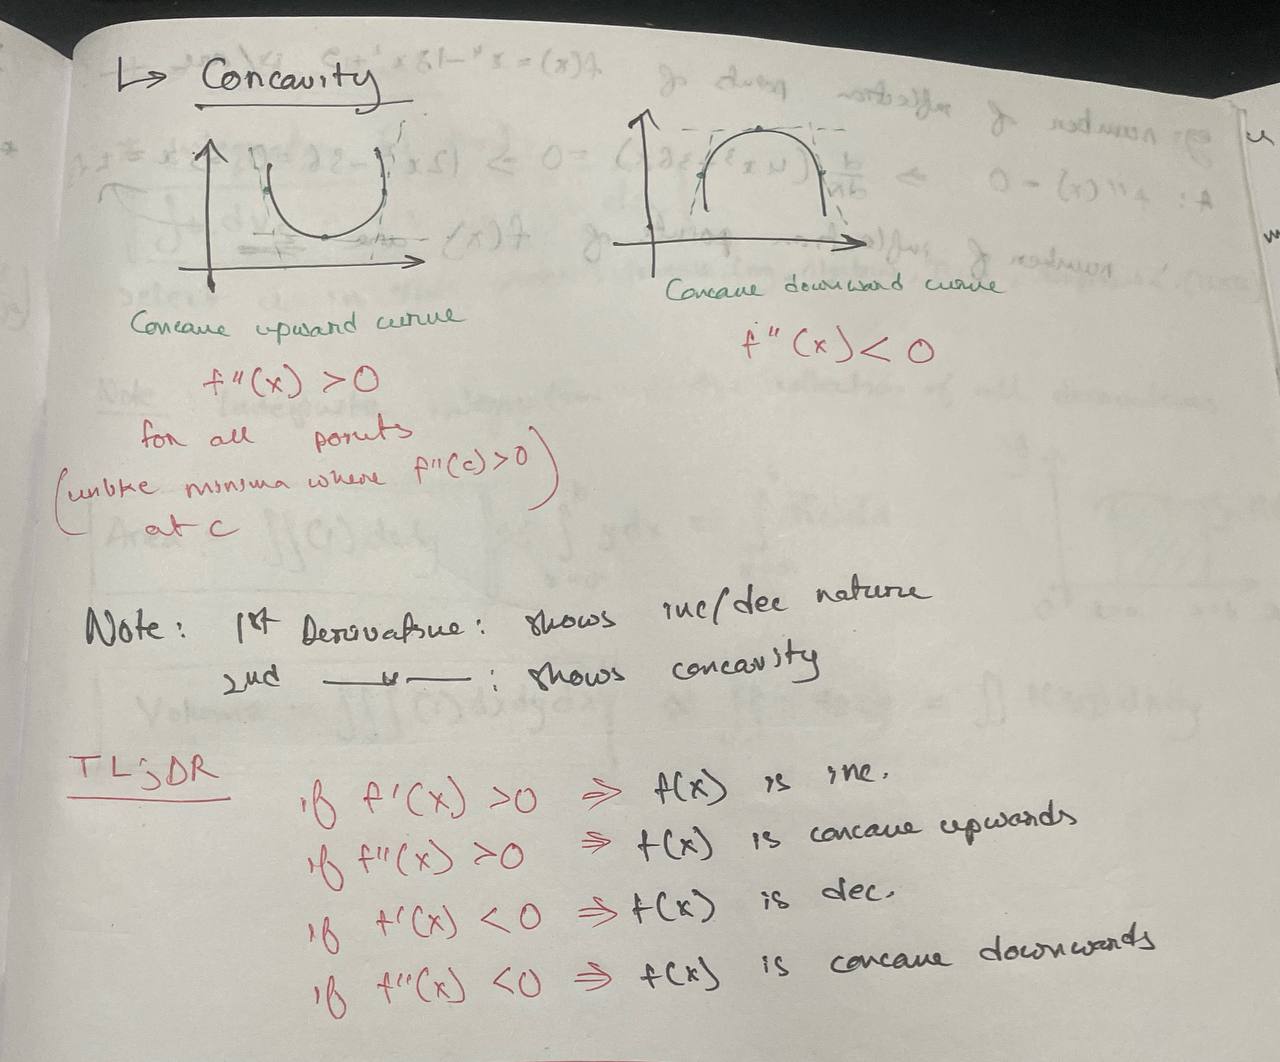 ↳ Concavity
Concave upward curve
f''(x) > 0
for all points
(unlike minima where f''(c) > 0)
at c
Concave downward curve
f''(x) < 0
Note: 1st Derivative: shows inc/dec nature
2nd —"—: shows concavity
TL;DR
if f'(x) > 0 ⇒ f(x) is inc.
if f''(x) > 0 ⇒ f(x) is concave upwards
if f'(x) < 0 ⇒ f(x) is dec.
if f''(x) < 0 ⇒ f(x) is concave downwards